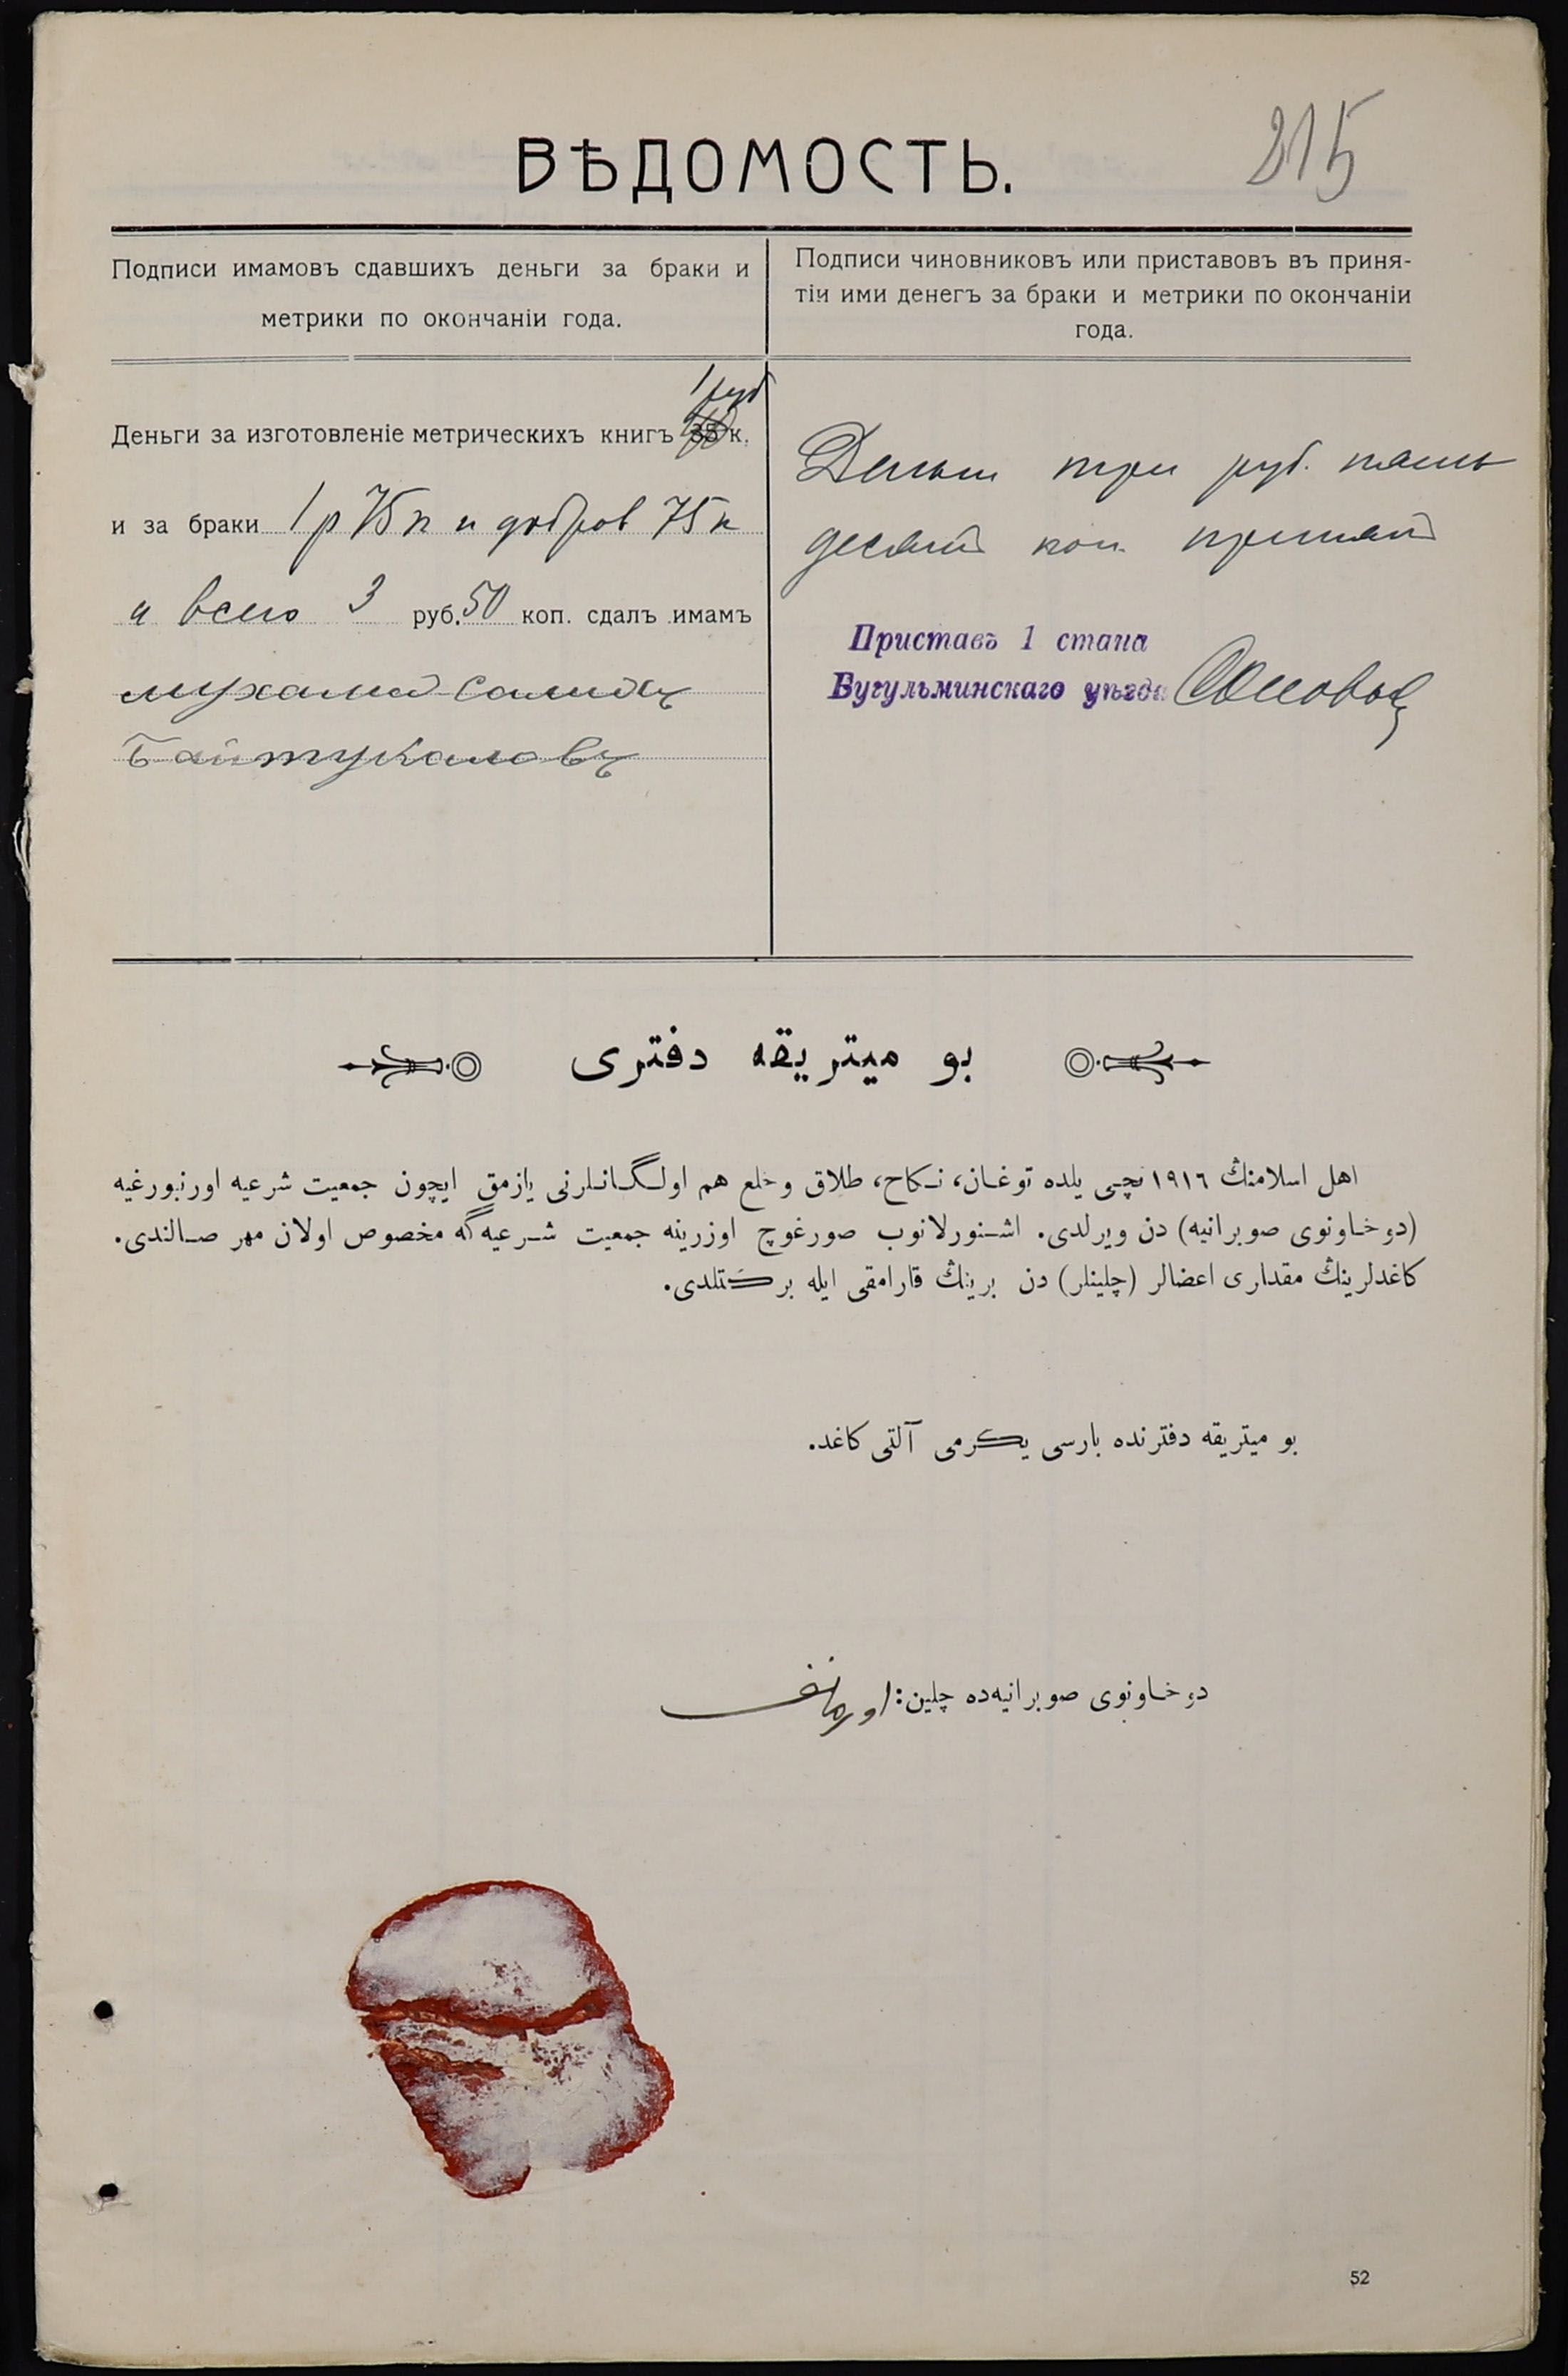 215
ВѢДОМОСТЬ.
Подписи имамовъ сдавшихъ деньги за браки и
метрики по окончаніи года.
Подписи чиновниковъ или приставовъ въ приня-
тіи ими денегъ за браки и метрики по окончаніи
года.
1 руб
Деньги за изготовленіе метрическихъ книгъ 35 к.
и за браки 1 р 75 к и добров 75 к
а всего 3 руб. 50 коп. сдалъ имамъ
мухамед
Байтукаловъ
Деньги три руб. пять
десят коп. принял
Приставъ 1 стана
Бугульминскаго уѣзда
بو ميتريقه دفترى
اهل اسلامنڭ ١٩١٦ نچى يلده توغان، نكاح، طلاق وخلع هم اولگانلرنى يازمق ايچون جمعيت شرعيه اورنبورغيه
(دوخاونوى صوبرانيه) دن ويرلدى. اشنورلانوب صورغوچ اوزرينه جمعيت شرعيه‌گه مخصوص اولان مهر صالندى.
كاغدلرينڭ مقدارى اعضالر (چلينلر) دن برينڭ قارامقى ايله بركتلدى.
بو ميتريقه دفترنده بارسى يكرمى آلتى كاغد.
دوخاونوى صوبرانيه‌ده چلين:
52